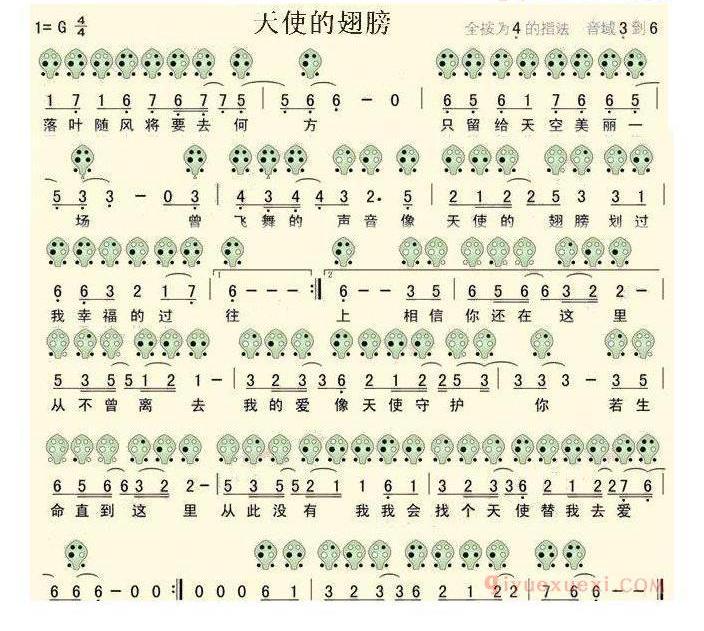 天使的翅膀
1= G 4/4
全按为 4 的指法 音域 3 到 6
1 7 1 6 7 6 7 7 5 | 5 6 6 - 0 | 6 5 6 1 7 6 6 5 |
落叶随风将要去何 方 只留给天空美丽一
5 3 3 - 0 3 | 4 3 4 4 3 2. 5 | 2 1 2 2 5 3 3 1 |
场 曾 飞舞的 声音像 天使的 翅膀划过
6 6 3 2 1 7 | 1 6 - - - :| 2 6 - - 3 5 | 6 5 6 6 3 2 2 - |
我幸福的过 往 上 相信 你还在 这 里
5 3 5 5 1 2 1 - | 3 2 3 3 6 2 1 2 2 5 3 | 3 3 - 3 5 |
从不曾离 去 我的爱像天使守护 你 若生
6 5 6 6 3 2 2 - | 5 3 5 5 2 1 1 6 1 | 3 2 3 3 6 2 1 2 2 7 6 |
命直到这 里 从此没有 我我会 找个天使替我去爱
6 6 6 - 0 0 :| 0 0 0 6 1 | 3 2 3 3 6 2 1 2 2 | 7 6 6 - 0 |
qiyuexuexi.COM